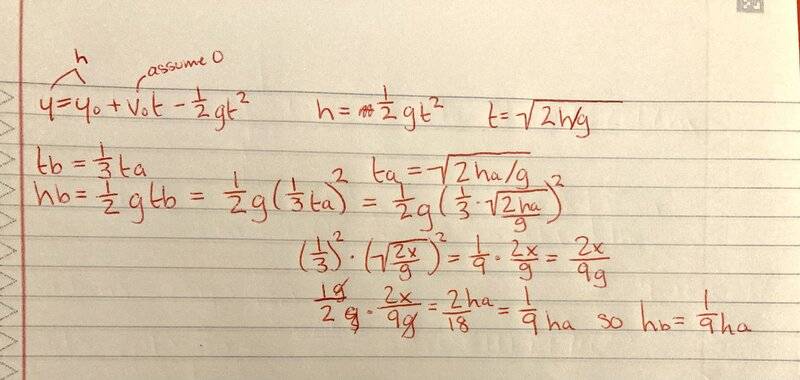 h
assume 0
y = y₀ + v₀t - 1/2 gt² h = 1/2 gt² t = √2h/g
tb = 1/3 ta ta = √2ha/g
hb = 1/2 gtb = 1/2 g(1/3 ta)² = 1/2 g(1/3 · √2ha/g)²
(1/3)² · (√2x/g)² = 1/9 · 2x/g = 2x/9g
1g/2g · 2x/9g = 2ha/18 = 1/9 ha so hb = 1/9 ha